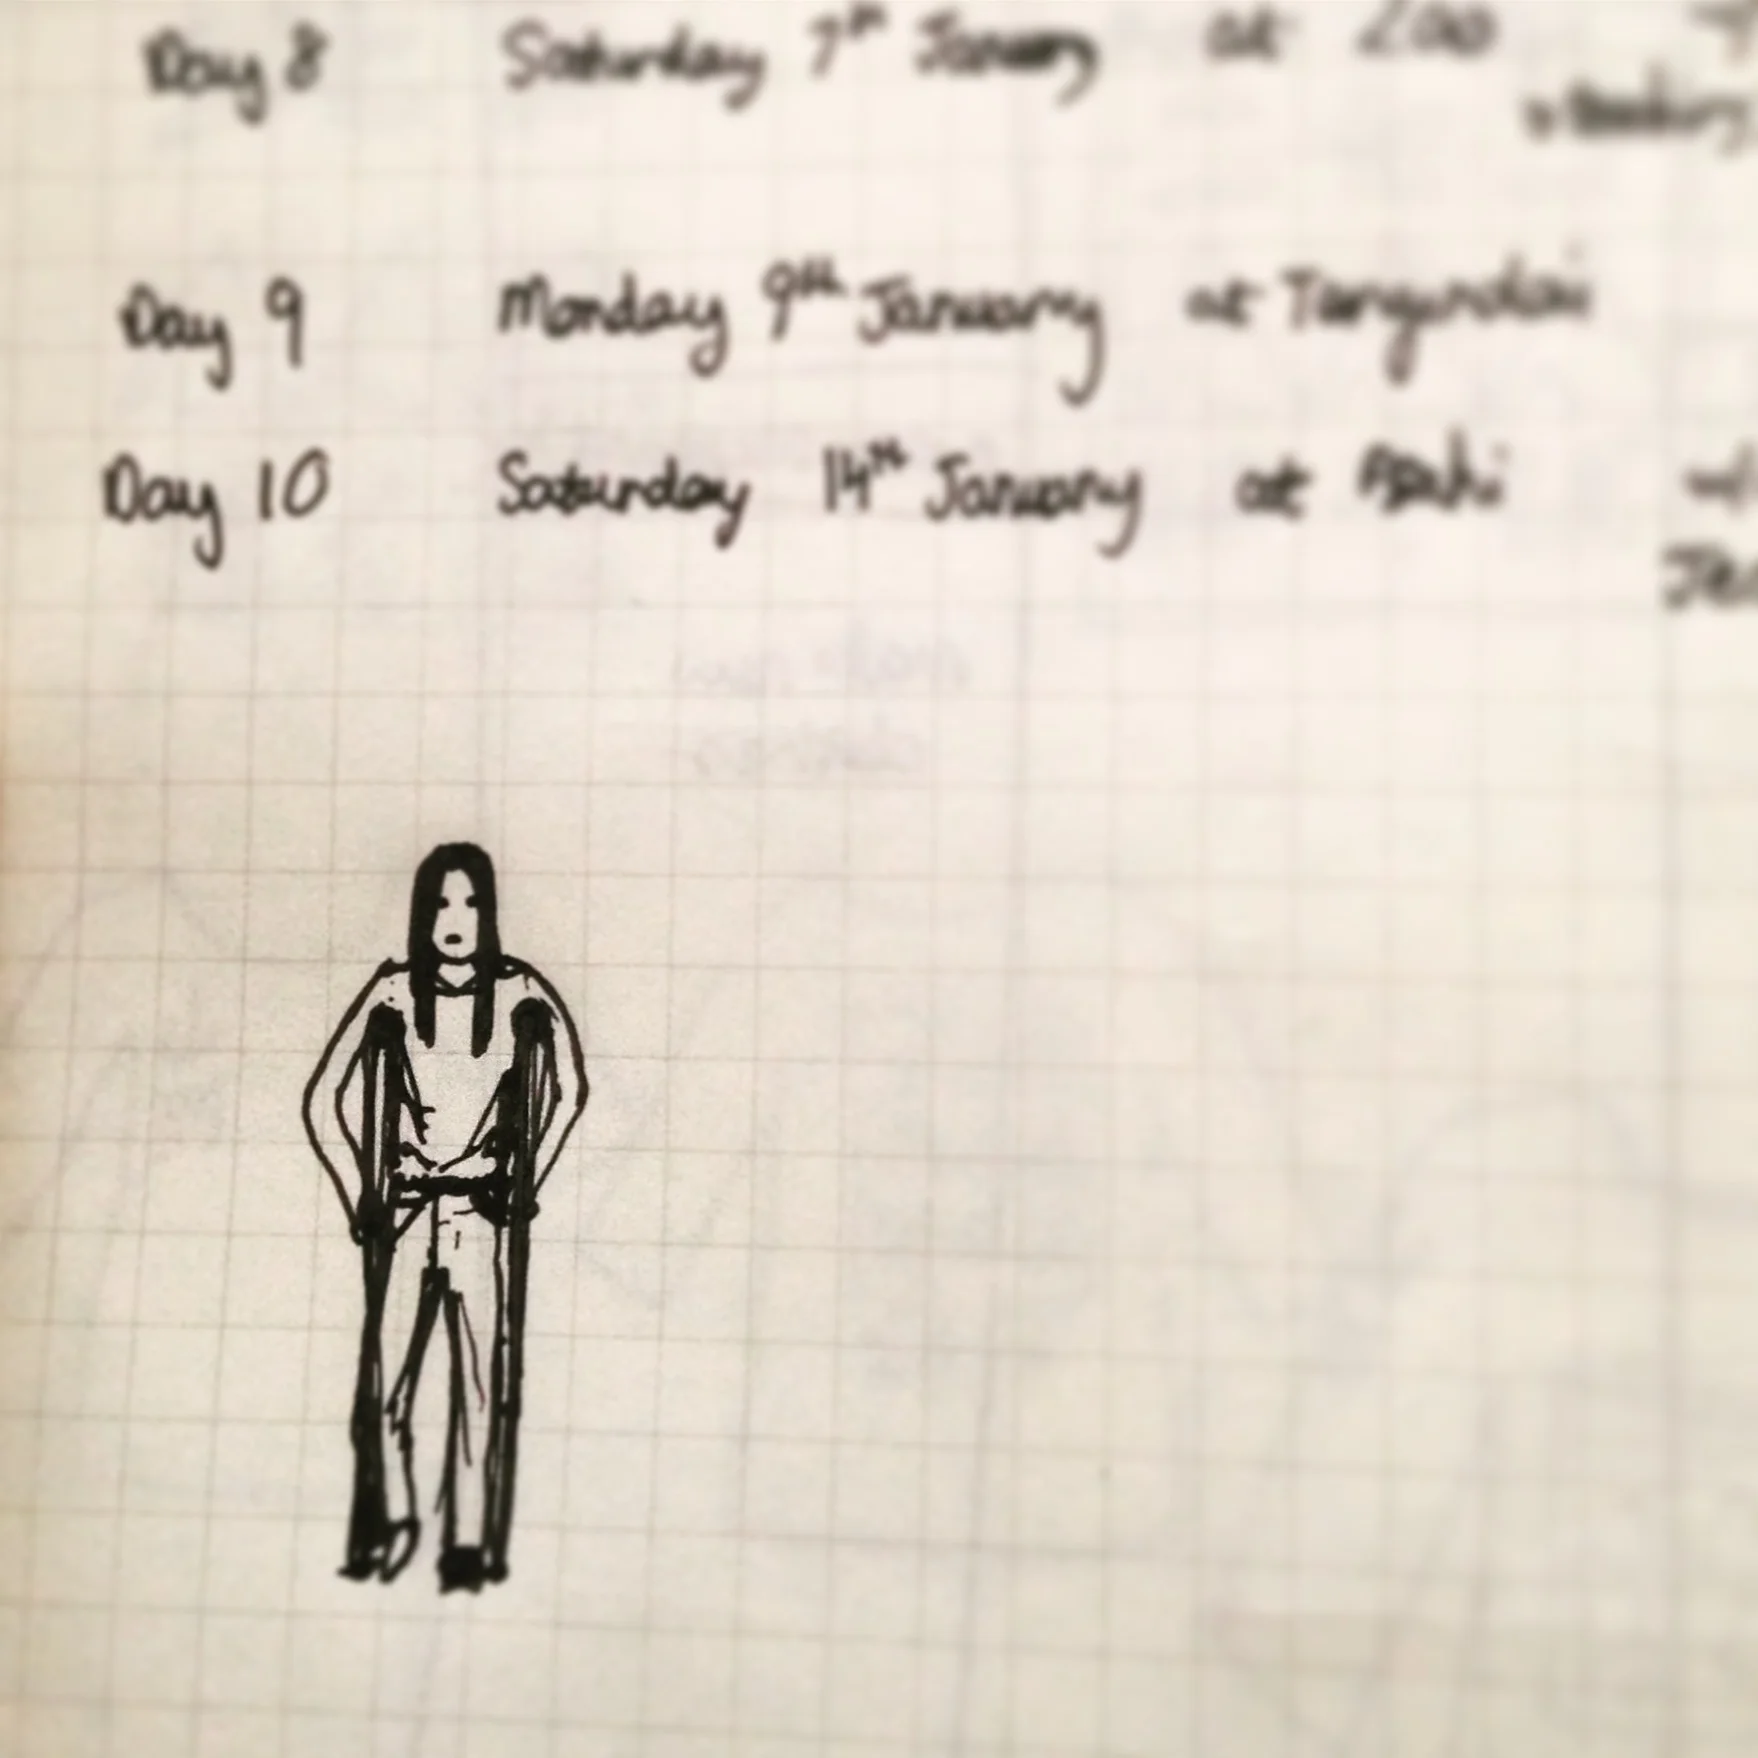 Day 8 Saturday 7th January at Zao
Day 9 Monday 9th January at Tengendai
Day 10 Saturday 14th January at Asahi